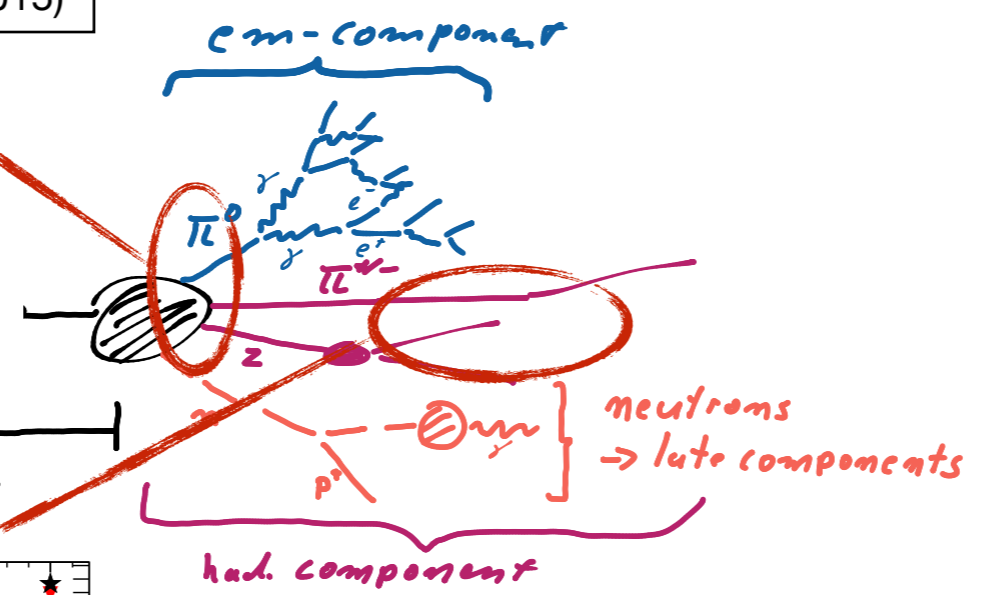 015)
em-component
γ
e⁻
π⁰
γ
e⁺
π+/-
z
n
neutrons
→ late components
γ
p⁺
had. component